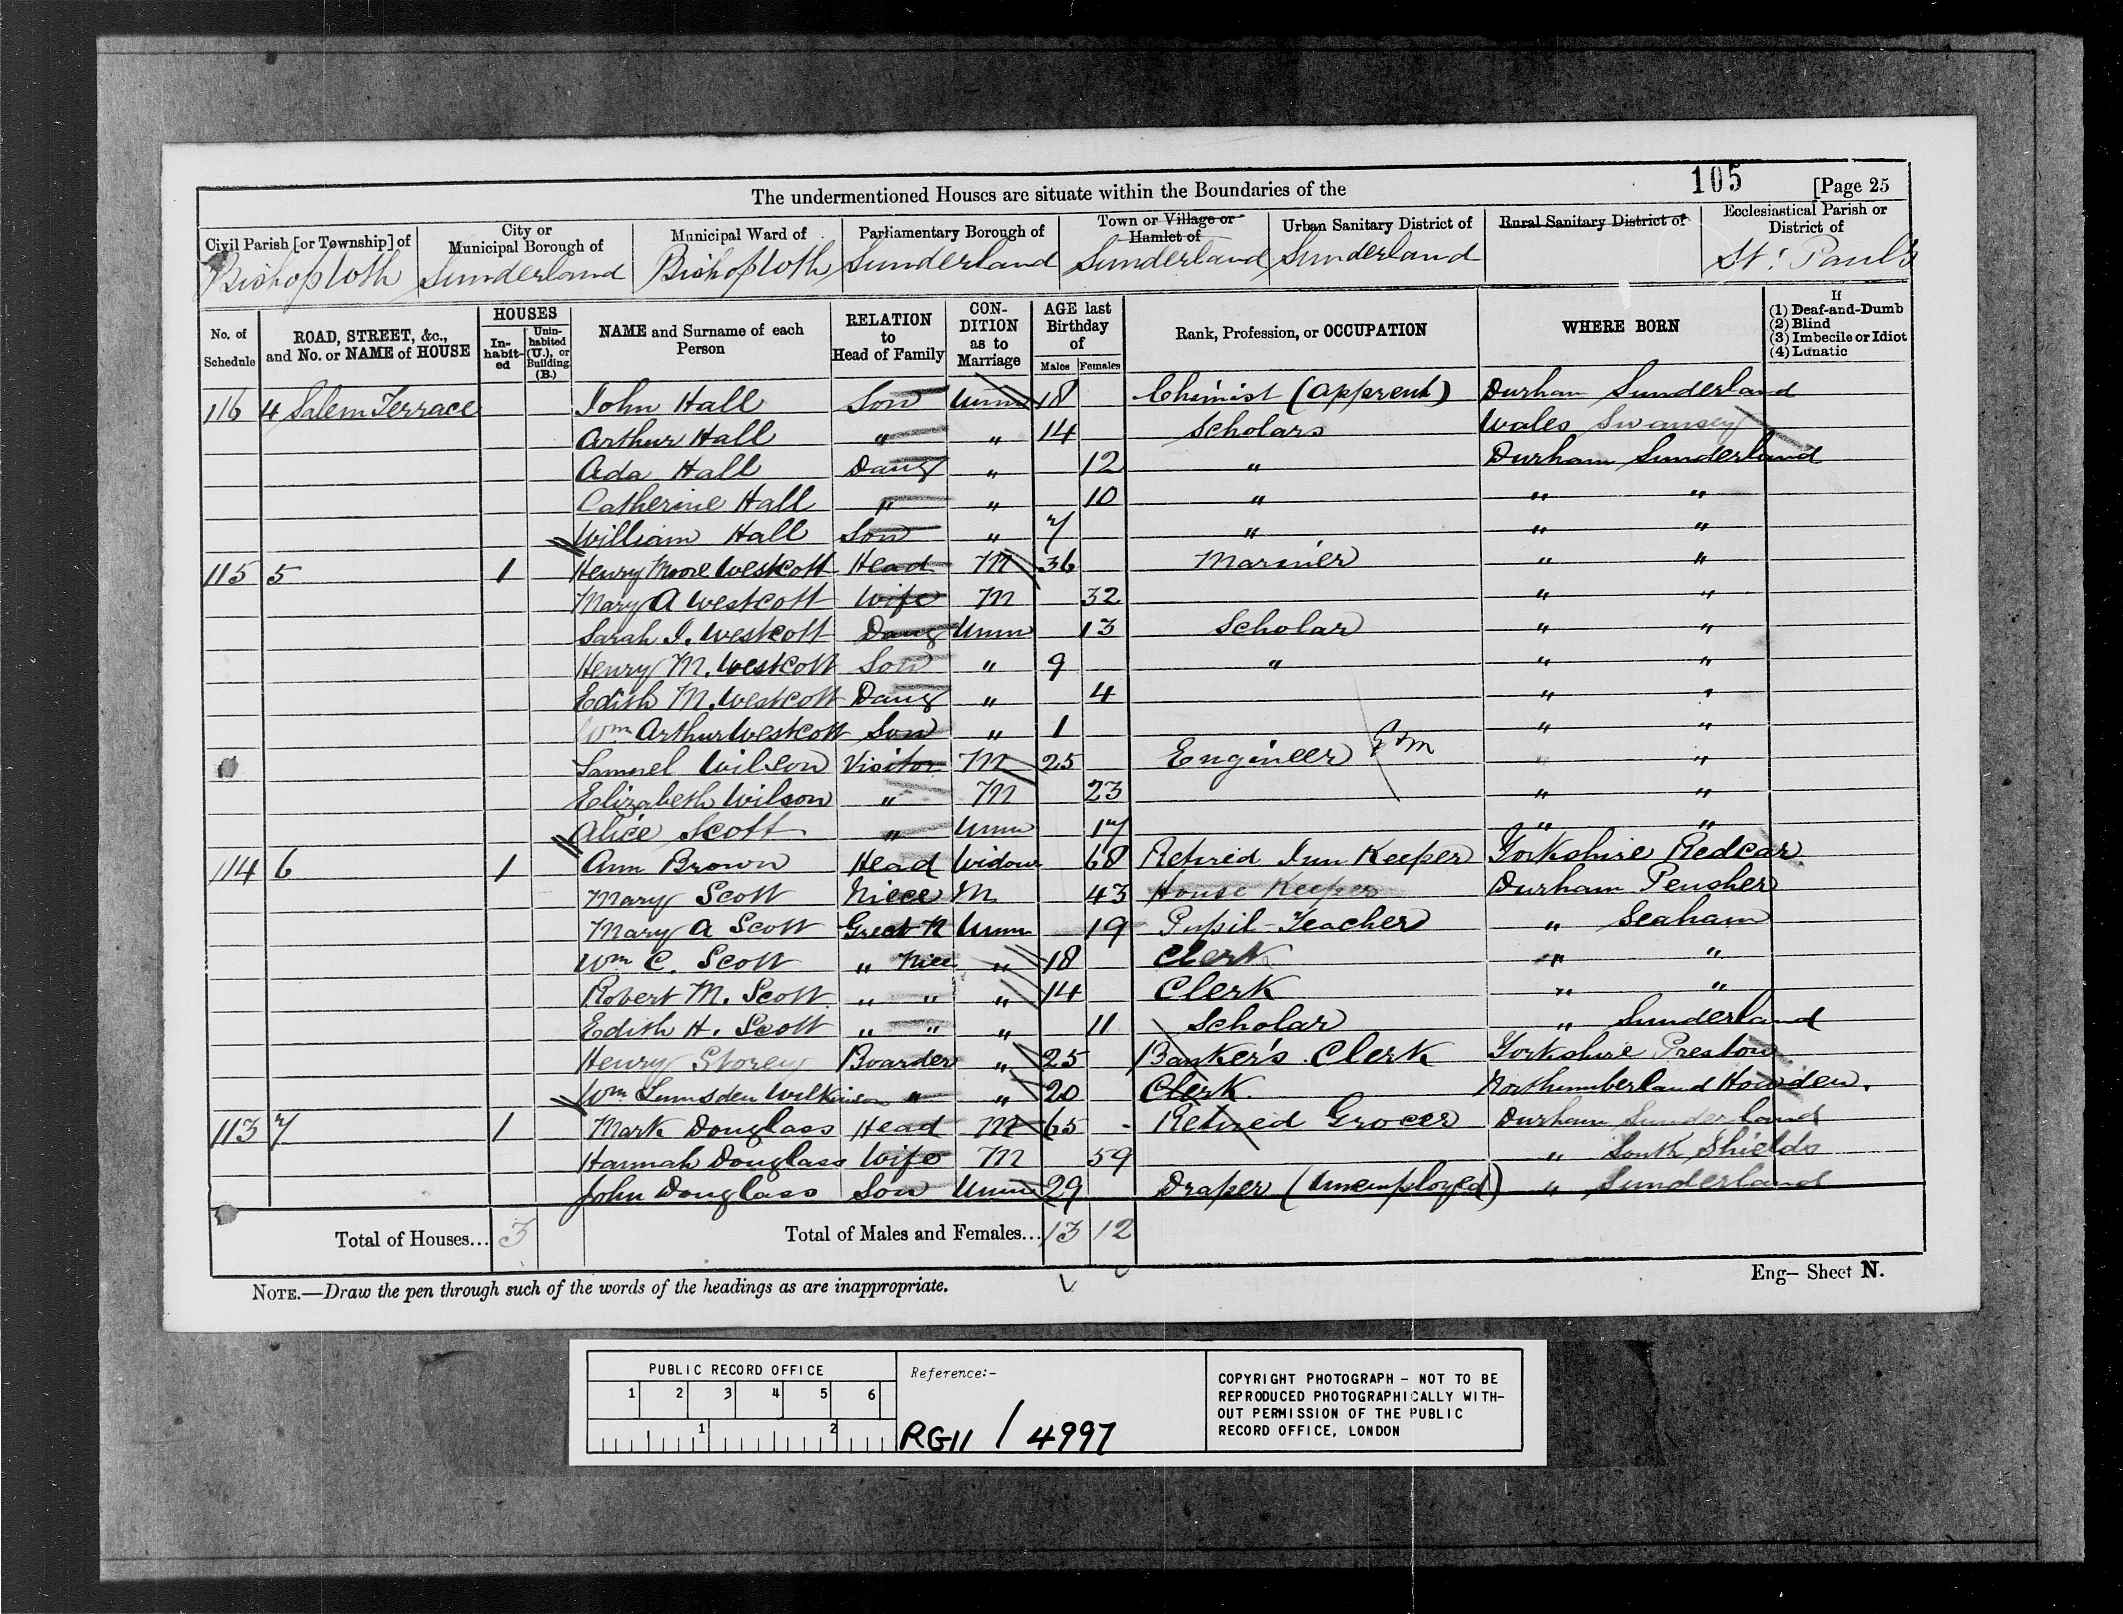 The undermentioned Houses are situate within the Boundaries of the 105 [Page 25
Civil Parish [or Township] of City or Municipal Borough of Municipal Ward of Parliamentary Borough of Town or Village or Hamlet of Urban Sanitary District of Rural Sanitary District of Ecclesiastical Parish or District of
Bishopwth Sunderland Bishopwth Sunderland Sunderland Sunderland St. Paul's
No. of Schedule ROAD, STREET, &c., and No. or NAME of HOUSE HOUSES In-habit-ed Unin-habited (U.), or Building (B.) NAME and Surname of each Person RELATION to Head of Family CON-DITION as to Marriage AGE last Birthday of Males Females Rank, Profession, or OCCUPATION WHERE BORN If (1) Deaf-and-Dumb (2) Blind (3) Imbecile or Idiot (4) Lunatic
116 4 Salem Terrace John Hall Son Unm 18 Chimist (Apprent) Durham Sunderland
Arthur Hall " " 14 Scholars Wales Swansey
Ada Hall Daug " 12 " Durham Sunderland
Catherine Hall " " 10 " " "
William Hall Son " 7 " " "
115 5 1 Henry Moore Westcott Head M 36 Marinier " "
Mary A Westcott Wife M 32 " "
Sarah I. Westcott Daug Unm 13 Scholar " "
Henry M. Westcott Son " 9 " " "
Edith M. Westcott Daug " 4 " "
Wm Arthur Westcott Son " 1 " "
Samuel Wilson Visitor M 25 Engineer E&M " "
Elizabeth Wilson " M 23 " "
Alice Scott " Unm 17 " "
114 6 1 Ann Brown Head Widow 68 Retired Inn Keeper Yorkshire Redcar
Mary Scott Niece M 43 House Keeper Durham Pensher
Mary A Scott Great N Unm 19 Pupil-Teacher " Seaham
Wm C. Scott " Niece " 18 Clerk " "
Robert M. Scott " " " 14 Clerk " "
Edith H. Scott " " " 11 Scholar " Sunderland
Henry Storey Boarder " 25 Banker's Clerk Yorkshire Preston
Wm Lumsden Wilkinson " " 20 Clerk. Northumberland Howden.
113 7 1 Mark Douglass Head M 65 Retired Grocer Durham Sunderland
Hannah Douglass Wife M 59 " South Shields
John Douglass Son Unm 29 Draper (Unemployed) " Sunderland
Total of Houses... 3 Total of Males and Females... 13 12
NOTE.—Draw the pen through such of the words of the headings as are inappropriate.
Eng— Sheet N.
PUBLIC RECORD OFFICE
1 2 3 4 5 6
1 2
Reference:-
RG11 / 4997
COPYRIGHT PHOTOGRAPH – NOT TO BE
REPRODUCED PHOTOGRAPHICALLY WITH-
OUT PERMISSION OF THE PUBLIC
RECORD OFFICE, LONDON